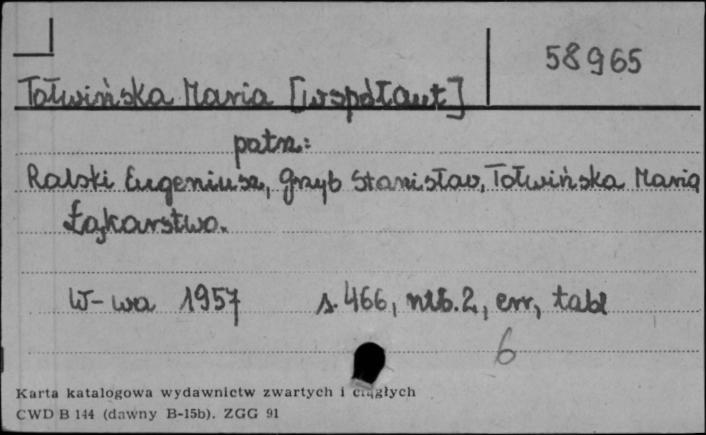 58965
Tołwińska Maria [współaut]
patrz:
Ralski Eugeniusz, Grzyb Stanisław, Tołwińska Maria
Łąkarstwo.
W-wa 1957 s. 466, nlb. 2, err, tabl
6
Karta katalogowa wydawnictw zwartych i ciągłych
CWD B 144 (dawny B-15b). ZGG 91